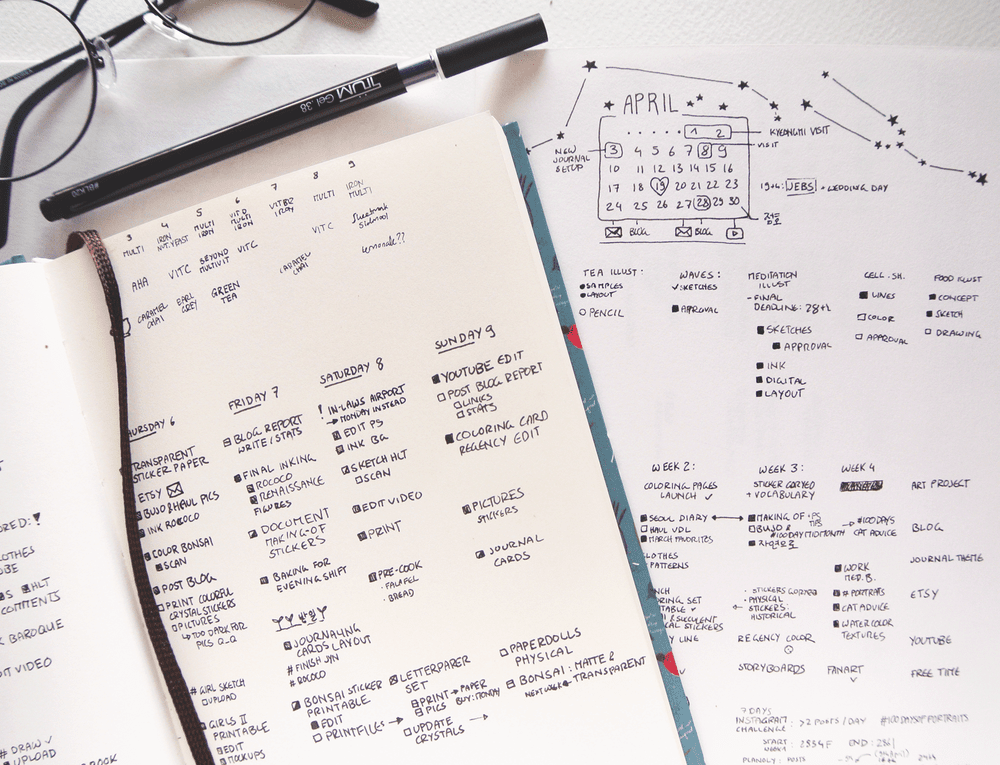 TRÜM Gel .38
3
4
5
6
7
8
9
MULTI
IRON
NUT. YEAST
MULTI
IRON
VIT D
MULTI
IRON
IRON
MULTI
IRON
MULTI
AHA
VITC
BEYOND
MULTIVIT
VITC
VITC
CARAMEL
CHAI
EARL
GREY
GREEN
TEA
CARAMEL
CHAI
lemonade??
URSDAY 6
TRANSPARENT
STICKER PAPER
ETSY
BUJO & HAUL PICS
INK ROCOCO
COLOR BONSAI
SCAN
POST BLOG
PRINT COLORFUL
CRYSTAL STICKERS
PICTURES
↳ TOO DARK FOR
PICS Q_Q
# GIRL SKETCH
UPLOAD
GIRLS II
PRINTABLE
EDIT
MOCKUPS
FRIDAY 7
BLOG REPORT
WRITE / STATS
FINAL INKING
ROCOCO
RENAISSANCE
FIGURES
DOCUMENT
MAKING-OF
STICKERS
BAKING FOR
EVENING SHIFT
JOURNALING
CARDS LAYOUT
# FINISH
# ROCOCO
BONSAI STICKER
PRINTABLE
EDIT
PRINTFILES →
SATURDAY 8
! IN-LAWS AIRPORT
→ MONDAY INSTEAD
EDIT PS
INK BG
SKETCH HLT
SCAN
EDIT VIDEO
PRINT
PRE-COOK
· FALAFEL
· BREAD
LETTERPAPER
SET
PRINT → PAPER
PICS BUY: MONDAY
UPDATE →
CRYSTALS
SUNDAY 9
YOUTUBE EDIT
POST BLOG REPORT
LINKS
STATS
COLORING CARD
REGENCY EDIT
PICTURES
STICKERS
JOURNAL
CARDS
PAPERDOLLS
PHYSICAL
BONSAI: MATTE &
NEXT WEEK ← TRANSPARENT
RED: !
LOTHES
HLT
COMMENTS
BAROQUE
DIT VIDEO
# DRAW ✓
UPLOAD
BOOK
APRIL
1 2
3 4 5 6 7 8 9
10 11 12 13 14 15 16
17 18 19 20 21 22 23
24 25 26 27 28 29 30
BLOG BLOG
KYEONGHI VISIT
VISIT
NEW
JOURNAL
SETUP
19+4: JEBS + WEDDING DAY
TEA ILLUST:
SAMPLES
LAYOUT
PENCIL
WAVES:
✓ SKETCHES
APPROVAL
MEDITATION
ILLUST
- FINAL
DEADLINE: 28+1
SKETCHES
APPROVAL
INK
DIGITAL
LAYOUT
CELL. SH.
LINES
COLOR
APPROVAL
FOOD ILLUST
CONCEPT
SKETCH
DRAWING
WEEK 2:
COLORING PAGES
LAUNCH ✓
SEOUL DIARY ↔
HAUL VDL
MARCH FAVORITES
LOTHES
PATTERNS
RING SET
TABLE ✓
& SUCCULENT
STICKERS
LINE
WEEK 3:
STICKER GORYEO
+ VOCABULARY
MAKING OF · PS
TIPS
BUJO &
#100DAYMIDMONTH
· STICKERS GORYEO
· PHYSICAL
← STICKERS:
HISTORICAL
REGENCY COLOR
STORYBOARDS
WEEK 4
→ #100DAYS
CAT ADVICE
WORK
MED. B.
# PORTRAITS
CAT ADVICE
WATERCOLOR
TEXTURES
FANART
✓
ART PROJECT
BLOG
JOURNAL THEME
ETSY
YOUTUBE
FREE TIME
7 DAYS
INSTAGRAM
CHALLENGE
>2 POSTS / DAY
#100DAYSOFPORTRAITS
START:
WEEK 1
2854F
END:
PLANOLY: POSTS